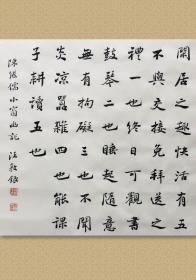 閒居之趣快活有五
不與交接免拜送之
禮一也終日可觀書
鼓琴二也睡起隨意
無有拘礙三也不聞
炎凉囂雜四也能課
子耕讀五也
陳繼儒小窗幽記